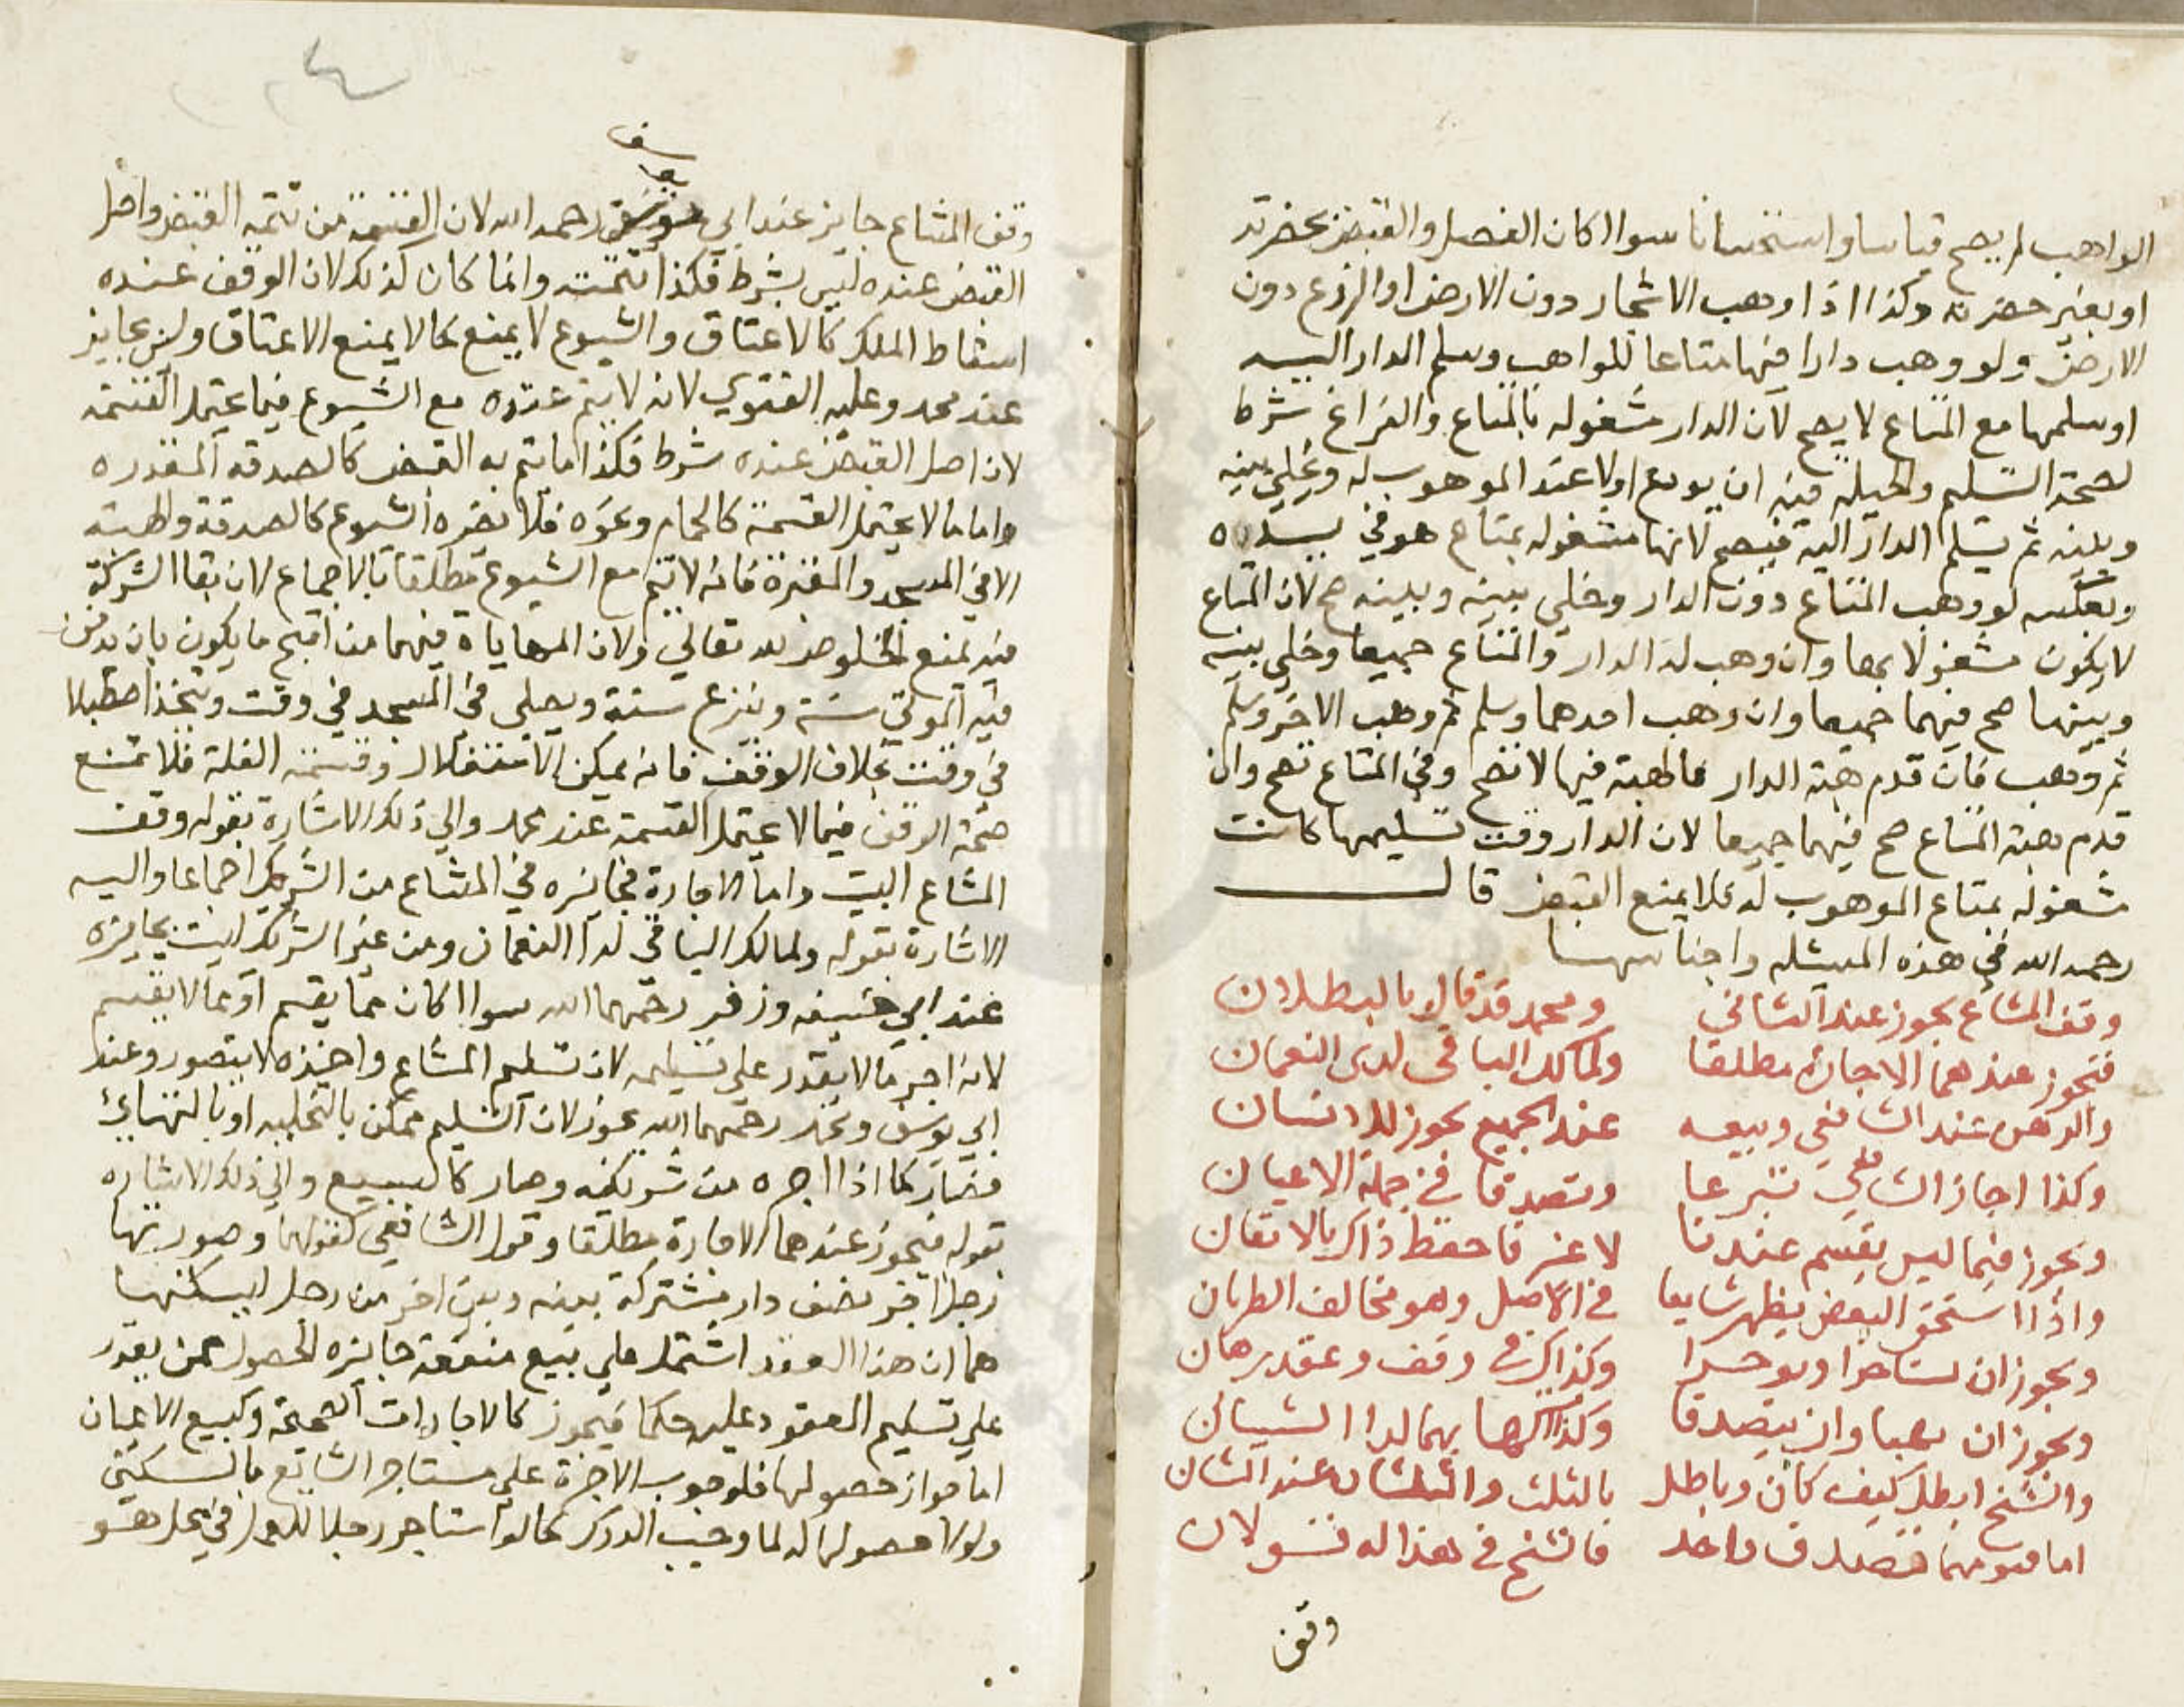 الواهب لم يصح قياسا واستحسانا سوا اكان الفصل والقبض بحضرته
او بغير حضرته وكذا اذا وهب الاشجار دون الارض او الزرع دون
الارض ولو وهب دارا فيها متاعا للواهب وسلم الدار اليه
او سلمها مع المتاع لا يصح لان الدار مشغوله بالمتاع والفراغ شرط
لصحة التسليم والحيله فيه ان يودع اولا عند الموهوب له ويخلي بينه
وبينه ثم يسلم الدار اليه فيصح لانها مشغوله بمتاع هو في يده
وبعكسه لو وهب المتاع دون الدار وخلي بينه وبينه صح لان المتاع
لا يكون مشغولا بها وان وهب له الدار والمتاع جميعا وخلي بينه
وبينها صح فيهما جميعا وان وهب احدهما وسلم ثم وهب الاخر وسلم
ثم وهب فان قدم هبة الدار فالهبة فيها لا تصح وفي المتاع تصح وان
قدم هبة المتاع صح فيهما جميعا لان الدار وقت تسليمها كانت
مشغوله بمتاع الموهوب له فلا يمنع القبض قال
رحمه الله في هذه المسئله واجناسها
وقف المشاع يجوز عند الثاني ومحمد قد قال بالبطلان
فتجوز عندهما الاجارة مطلقا ولمالك الباقى لدى النعمان
والرهن عند الشافعي وبيعه عند الجميع يجوز للانسان
وكذا اجاز الشافعي تبرعا وتصدقا في جملة الاعيان
ويجوز فيما ليس يقسم عندنا لا غير فاحفظ ذاكر بالاتقان
واذا استحق البعض يظهر شايعا في الاصل وهو مخالف الطريان
ويجوز ان يستاجرا ويوجرا وكذاك في وقف وعقد رهان
ويجوز ان يهبا وان يتصدقا وكذا بها لدا الشيبانى
والشيخ ابطل كيف كان وباطل بالثلث والثلثان عند الثان
اما هو منها فتصدق واحد فالشيخ في هذا له قولان
وقف
وقف المشاع جايز عند ابي يوسف رحمه الله لان القسمة من تتمة القبض واصل
القبض عنده ليس بشرط فكذا تتمته وانما كان كذلك لان الوقف عنده
اسقاط الملك كالاعتاق والشيوع لا يمنع كما لا يمنع الاعتاق وليس بجايز
عند محمد وعليه الفتوي لانه لا يتم عنده مع الشيوع فيما يحتمل القسمه
لان اصل القبض عنده شرط فكذا ما يتم به القبض كالصدقة المنفذه
واما ما لا يحتمل القسمة كالحمام ونحوه فلا يضره الشيوع كالصدقة والهبة
الا في المسجد والمقبرة فانه لا يتم مع الشيوع مطلقا بالاجماع لان بقا الشركة
فيه يمنع الخلوص لله تعالي ولان المهاياة فيهما من اقبح ما يكون بان يدفن
فيه الموتي سنة ويزرع سنة ويصلي في المسجد في وقت ويتخذ اصطبلا
في وقت بخلاف الوقف فانه يمكن الاستغلال وقسمة الغلة فلا تمنع
صحة الوقف فيما لا يحتمل القسمة عند محمد والي ذلك الاشارة بقوله وقف
المشاع البيت واما الاجارة فجايزه في المشاع من الشريك اجماعا واليه
الاشارة بقوله ولمالك الباقي لدا النعمان ومن غير الشريك ليست بجايزه
عند ابي حنيفه وزفر رحمهما الله سوا اكان مما يقسم او مما لا يقسم
لانه اجر ما لا يقدر علي تسليمه لان تسليم المشاع واخذه لا يتصور وعند
ابي يوسف ومحمد رحمهما الله يجوز لان التسليم ممكن بالتخليه او بالتهايئ
فصار كما اذا اجره من شريكه وصار كالبيع والي ذلك الاشاره
بقوله فيجوز عندهما الاجارة مطلقا وقول الشافعي كقولهما وصورتها
رجل اجر نصف دار مشتركة بينه وبين اخر من رجل ليسكنها
هما ان هذا العقد اشتمل علي بيع منفعة جايزه الحصول ممن يقدر
علي تسليم المعقود عليه حكما فيجوز كالاجارات الصحيحة وكبيع الاعيان
اما جواز حصولها فلوجوب الاجرة علي مستاجر الشايع بالسكني
ولولا حصولها له لما وجبت الاجرة كما لو استاجر رجلا للعمل في محل هو